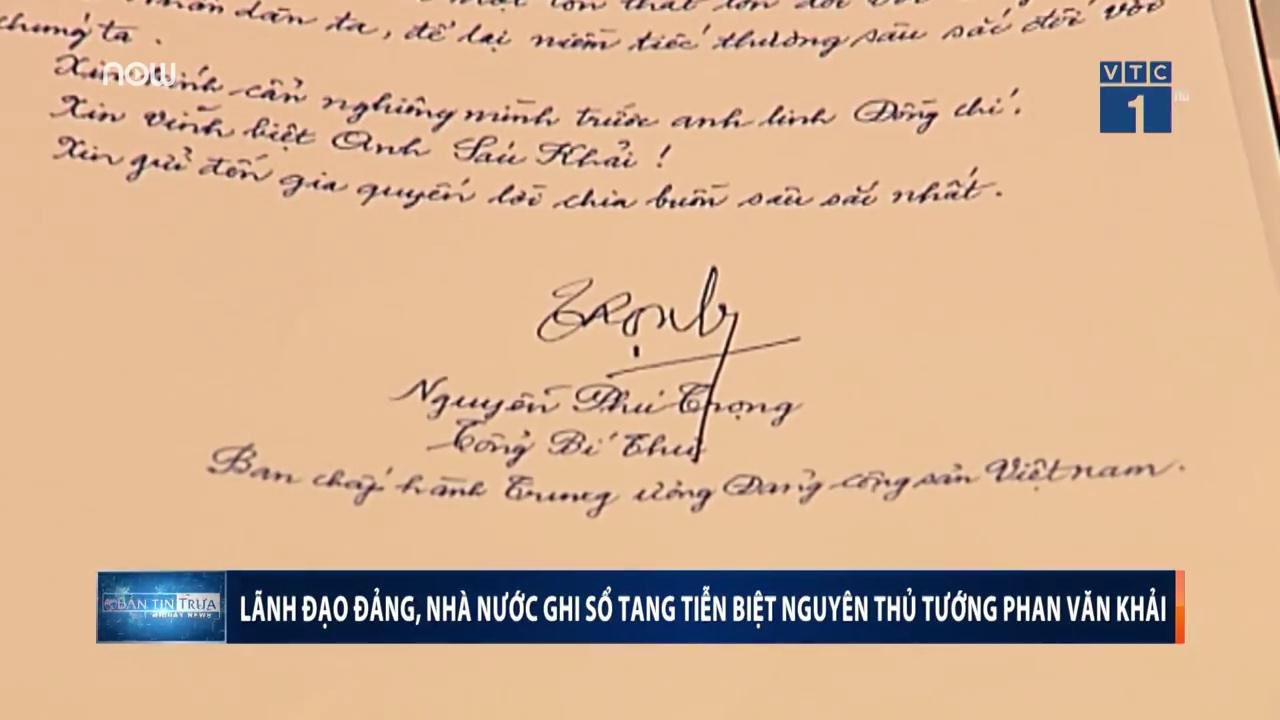 một tổn thất lớn đối với
nhân dân ta, để lại niềm tiếc thương sâu sắc đối với
chúng ta.
Xin kính cẩn nghiêng mình trước anh linh Đồng chí.
Xin vĩnh biệt Anh Sáu Khải!
Xin gửi đến gia quyến lời chia buồn sâu sắc nhất.
now
VTC
1
Trọng
Nguyễn Phú Trọng
Tổng Bí Thư
Ban chấp hành Trung ương Đảng cộng sản Việt nam.
BẢN TIN TRƯA
MIDDAY NEWS
LÃNH ĐẠO ĐẢNG, NHÀ NƯỚC GHI SỔ TANG TIỄN BIỆT NGUYÊN THỦ TƯỚNG PHAN VĂN KHẢI